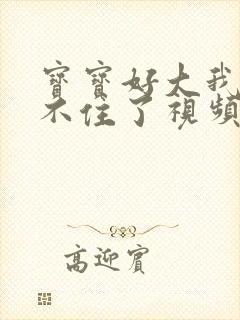 寶寶好大我
不住了視頻
高迎賓